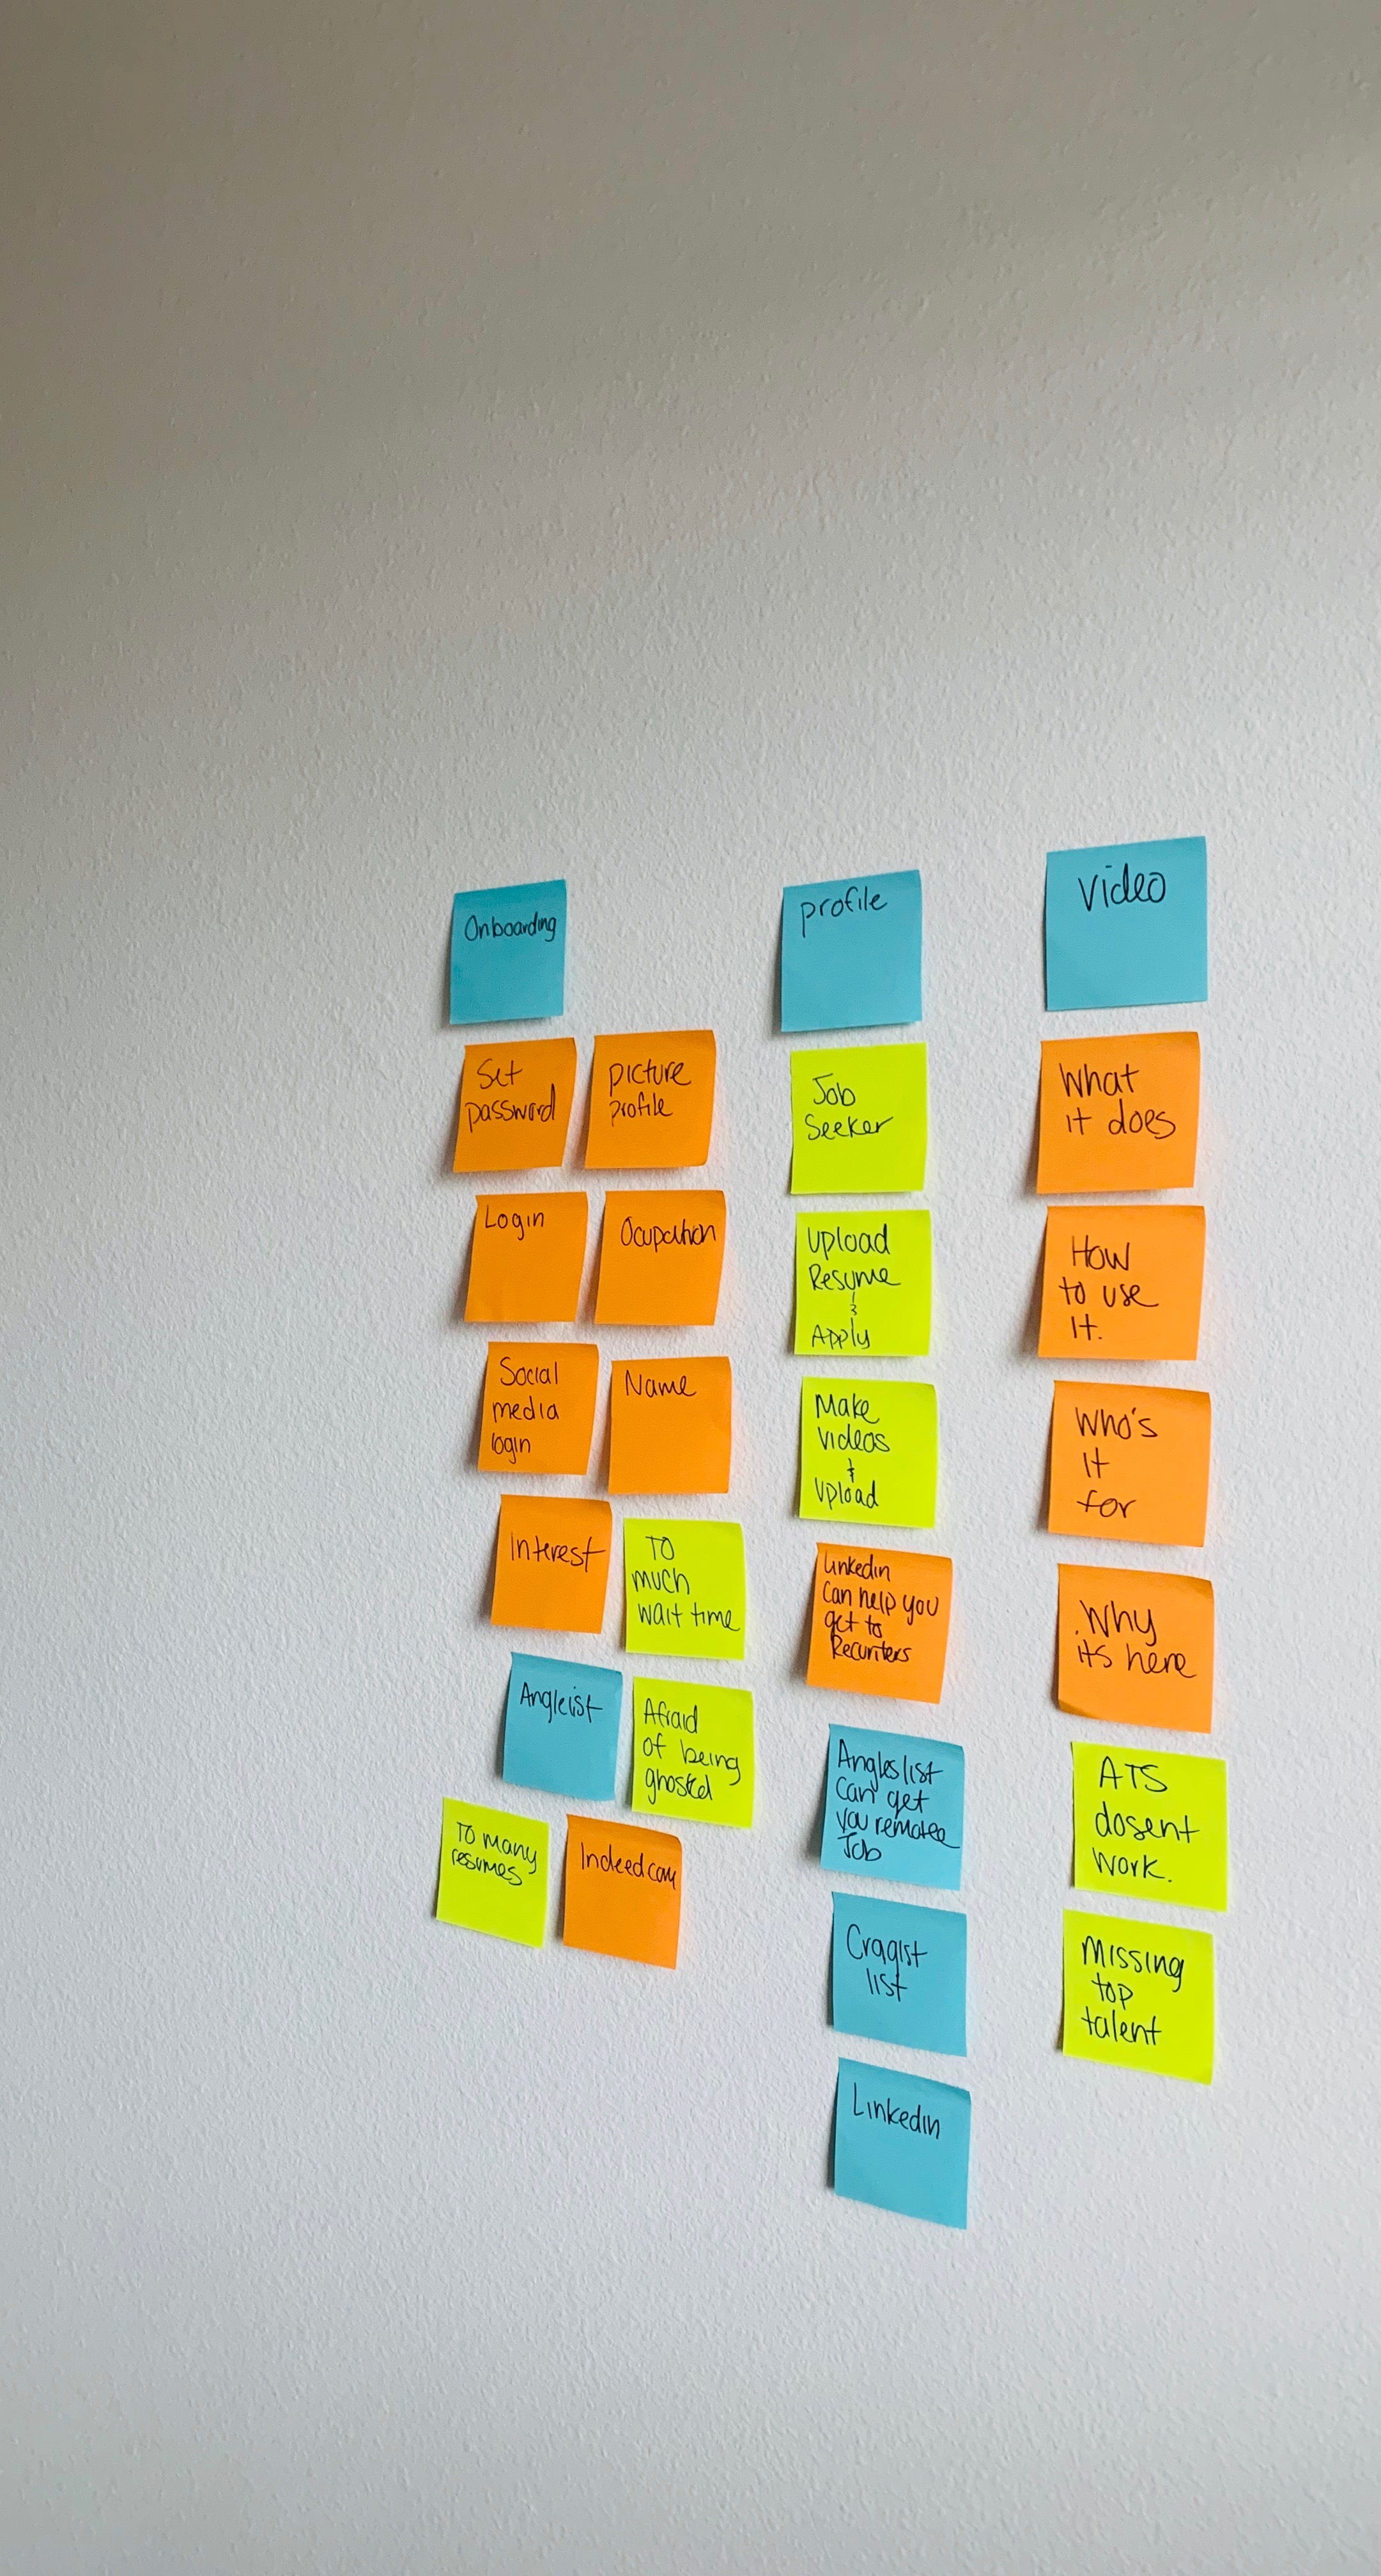 Onboarding
Set
password
picture
profile
Login
Ocupation
Social
media
login
Name
Interest
TO
much
wait time
Angleist
Afraid
of being
ghosted
To many
resumes
Indeed.com
profile
Job
Seeker
Upload
Resume
&
Apply
Make
Videos
&
Upload
Linkedin
Can help you
get to
Recuriters
Angleslist
Can get
you remotee
Job
Cragist
list
Linkedin
Video
What
it does
How
to use
It.
Who's
It
for
.Why
its here
ATS
dosent
work.
Missing
top
talent